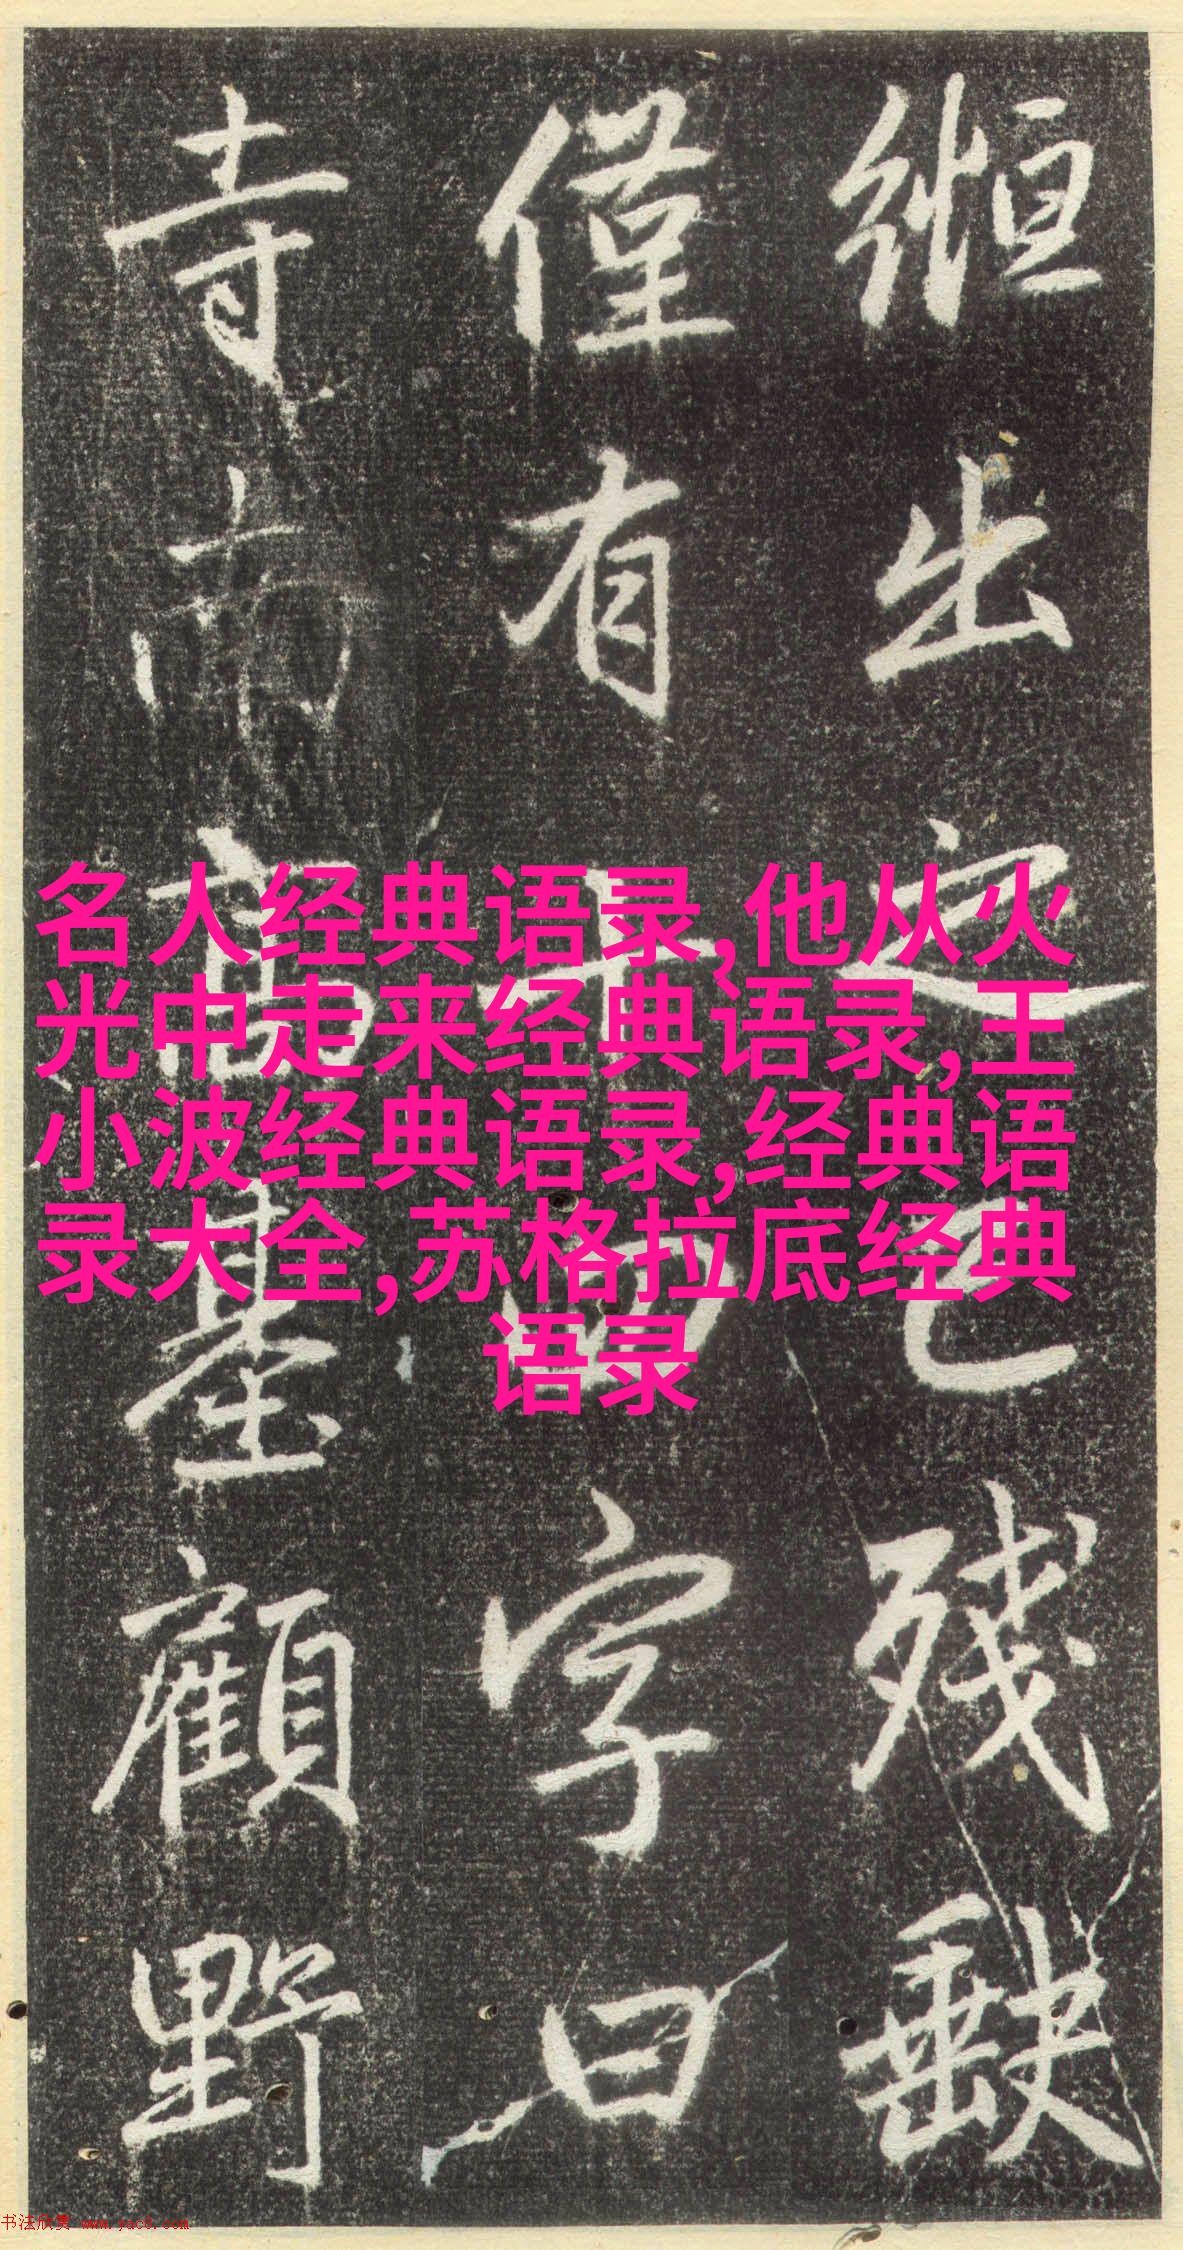 名人经典语录,他从火
光中走来经典语录,王
小波经典语录,经典语
录大全,苏格拉底经典
语录
緪出之已殘缺
僅有十四字曰
寺南高基顧野
书法欣赏 www.yac8.com